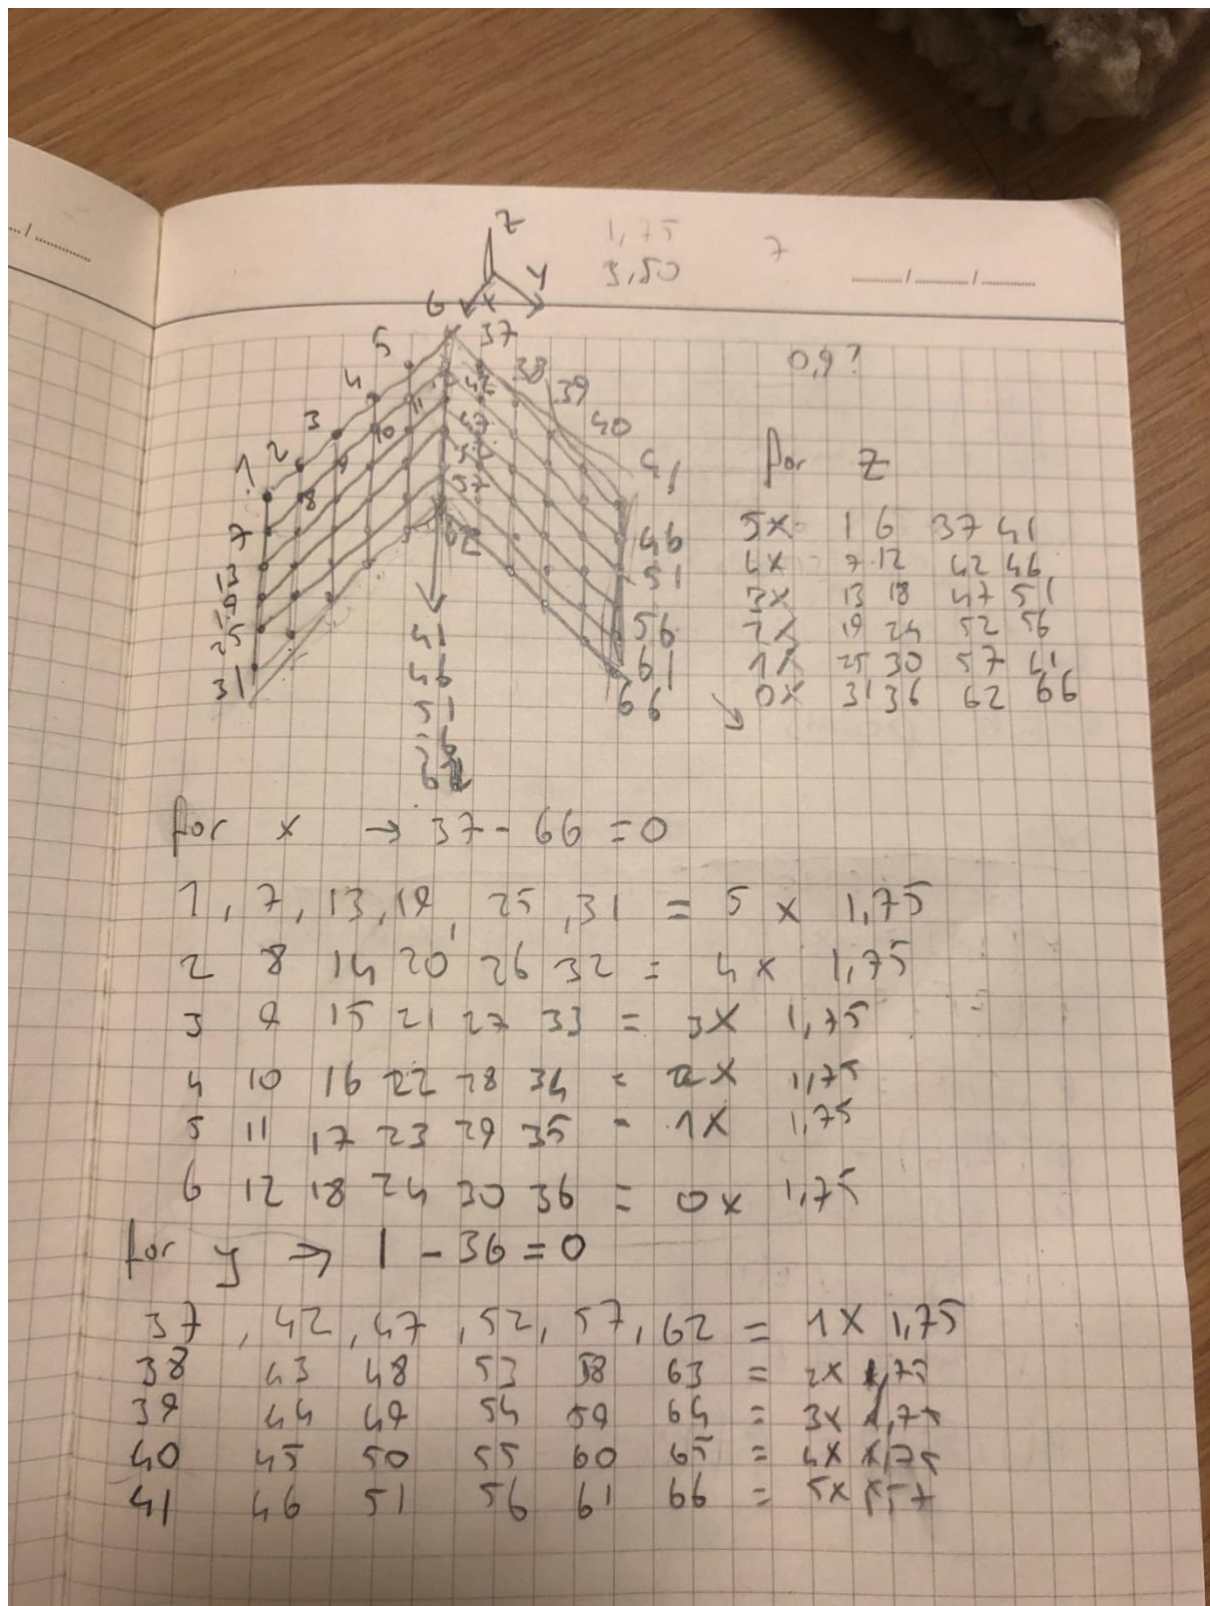 ..../..........
z
1,75
3,50
7
......../......../........
y
x
6
37
5
38
39
40
41
4
42
3
11
10
47
2
1
9
52
8
57
7
62
46
13
51
19
56
25
61
31
66
41
46
51
0,9?
for z
5x 1 6 37 41
4x 7 12 42 46
3x 13 18 47 51
2x 19 24 52 56
1x 25 30 57 61
0x 31 36 62 66
for x → 37 - 66 = 0
1, 7, 13, 19, 25, 31 = 5 x 1,75
2 8 14 20 26 32 = 4x 1,75
3 9 15 21 27 33 = 3x 1,75
4 10 16 22 28 34 = 2x 1,75
5 11 17 23 29 35 - 1x 1,75
6 12 18 24 30 36 = 0x 1,75
for y → 1 - 36 = 0
37, 42, 47, 52, 57, 62 = 1x 1,75
38 43 48 53 58 63 = 2x 1,75
39 44 49 54 59 64 = 3x 1,75
40 45 50 55 60 65 = 4x 1,75
41 46 51 56 61 66 = 5x